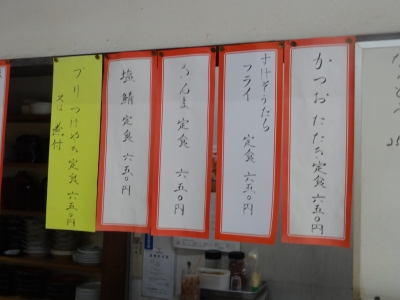 かつおたたき定食 六五〇円
すけそうたら
フライ 定食 六五〇円
さんま定食 六五〇円
塩鯖定食 六五〇円
ブリつけやき定食 六五〇円
又は 煮付